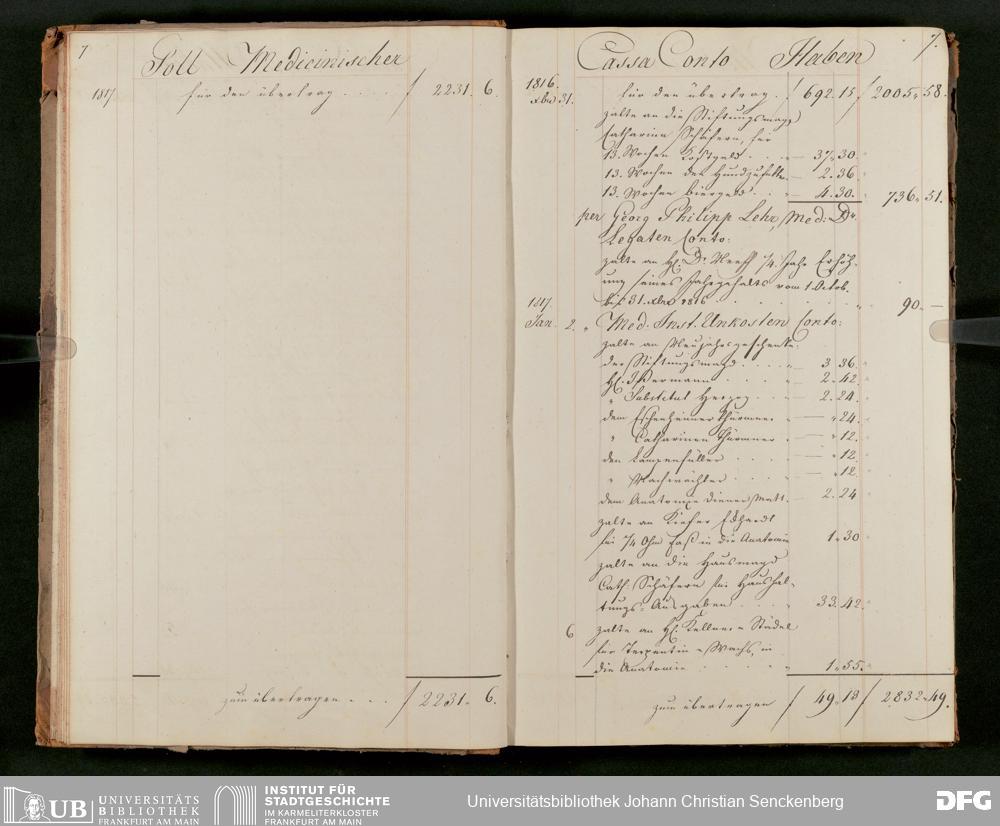 7
Soll Medicinischer
1817. für den übertrag . . . . f 2231. 6.
zum übertragen . . . f 2231. 6.
7.
Cassa Conto Haben
1816.
xbr 31. für den übertrag . f 692.15 f 2005. 58.
zalte an die Stiftungsmagd
Catharina Schäfern, für
13. Wochen Kostgeld . . . 37. 30.
13. Wochen 2. 36.
13. Wochen biergeld . . 4. 30. 736. 51.
per Georg Philipp Lehr, Med: Dr.
Legaten Conto:
zalte an H. Dr. Neeff 1/4 Jahr Erhöh-
ung seines Jahrgehalts vom 1 Octob.
bis 31. xbr 1816 . . . . . . 90. —
1817.
Jan. 2. " Med. Inst. Unkosten Conto:
zalte an Neujahrsgeschenke:
der Stiftungsmagd . . . . 3 36.
H. . . . . 2. 42.
" Substitut Herzog . . . 2. 24.
dem Eschenheimer Thürmer . — " 24.
" Catharinen Thürmer . — " 12.
den Lampenfüller . . . . — " 12.
" . . . . — " 12.
dem Anatomie Diener Matt. — 2. 24
zalte an Kiefer Eckhardt
für 1/4 Ohm Faß in die Anatomie 1. 30
zalte an die Hausmagd
Cath: Schäfern für Haushal-
tungs-Ausgaben . . . . 33. 42.
6 zalte an H. Kellner & Städel
für Terpentin & Wachs, in
die Anatomie . . . . . . 1. 55.
zum übertragen f 49. 13 f 2832. 49.
UB UNIVERSITÄTS
BIBLIOTHEK
FRANKFURT AM MAIN
INSTITUT FÜR
STADTGESCHICHTE
IM KARMELITERKLOSTER
FRANKFURT AM MAIN
Universitätsbibliothek Johann Christian Senckenberg
DFG